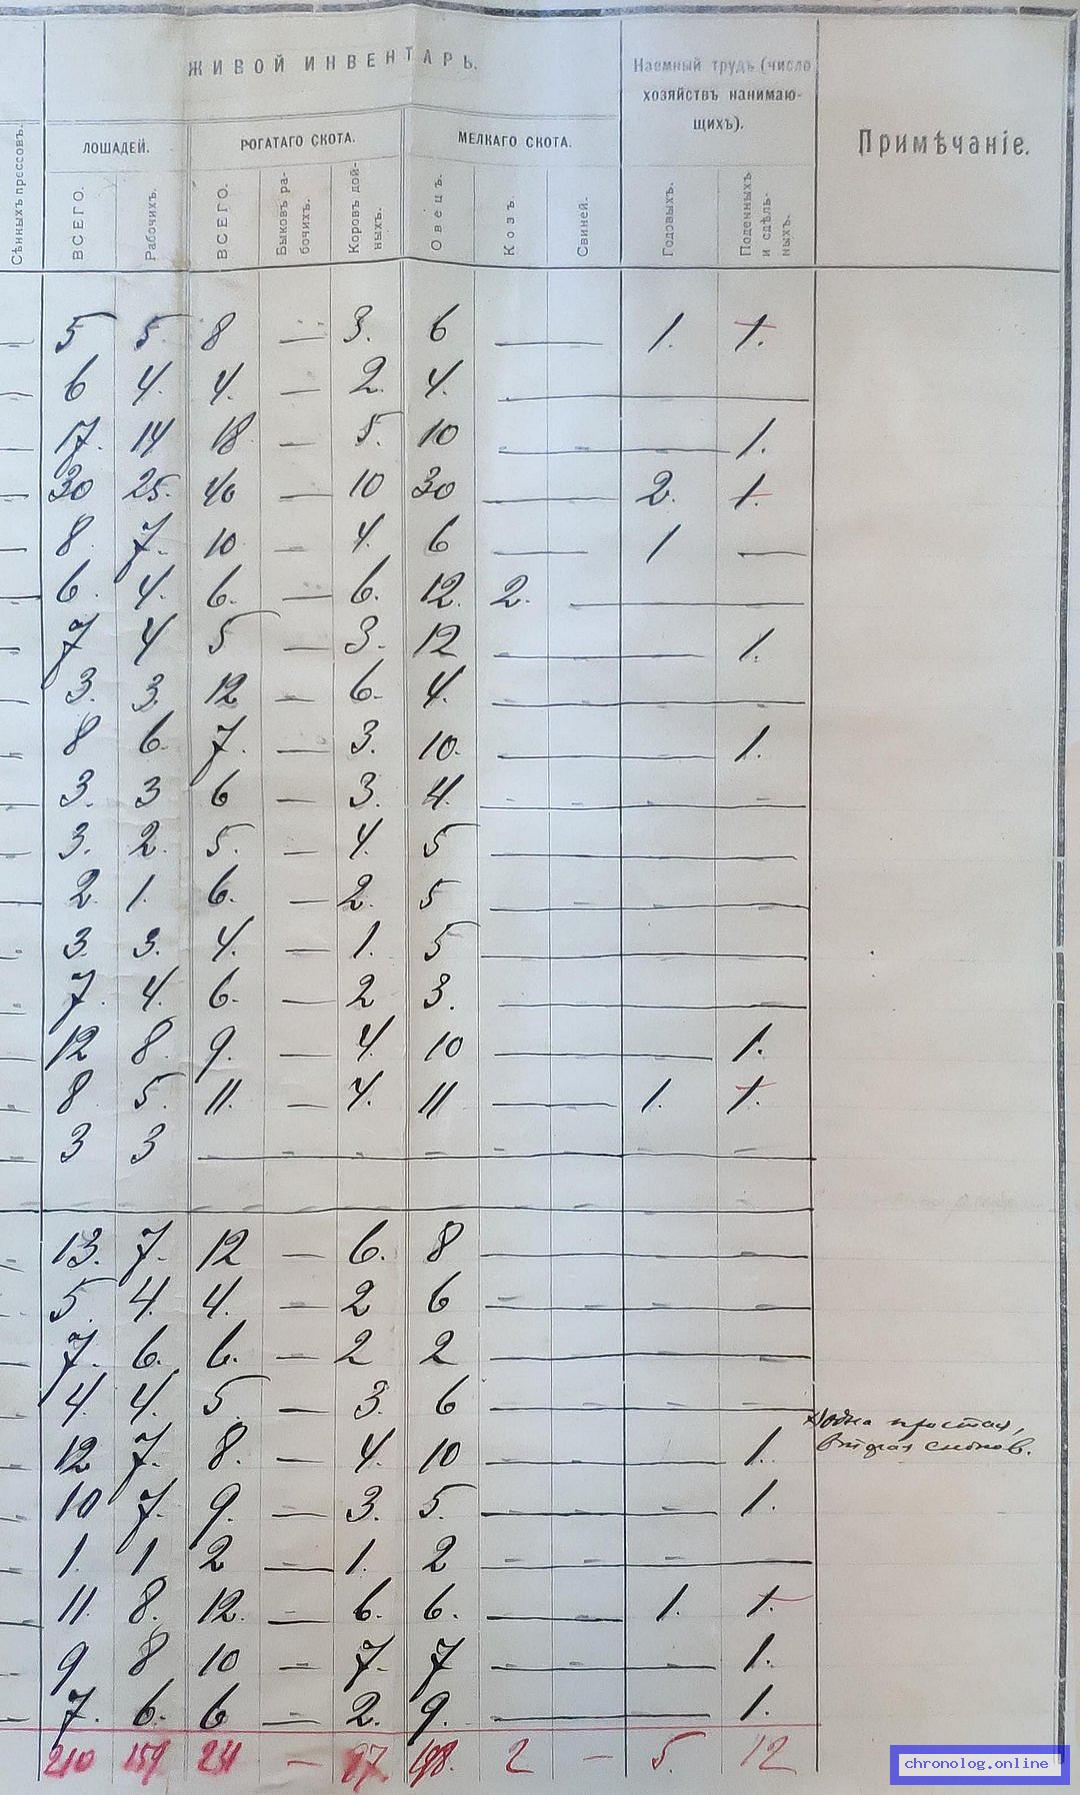 ЖИВОЙ ИНВЕНТАРЬ.
Наемный трудъ (число хозяйствъ нанимаю-щихъ).
Примѣчаніе.
ЛОШАДЕЙ. РОГАТАГО СКОТА. МЕЛКАГО СКОТА.
Сѣнныхъ прессовъ. ВСЕГО. Рабочихъ. ВСЕГО. Быковъ ра-бочихъ. Коровъ дой-ныхъ. Овецъ. Козъ. Свиней. Годовыхъ. Поденныхъ и сдѣль-ныхъ.
— 5 5 8 — 3. 6 — — 1. 1.
— 6 4. 4. — 2. 4. — — — —
— 17. 14 18 — 5. 10 — — — 1.
— 30 25. 40 — 10 30 — — 2. 1.
— 8 7. 10 — 4. 6 — — 1 —
— 6. 4. 6. — 6. 12. 2. — — —
— 7 4 5 — 3. 12 — — — 1.
— 3. 3. 12 — 6. 4. — — — —
— 8 6. 7. — 3. 10. — — — 1.
— 3. 3 6 — 3. 4. — — — —
— 3. 2. 5. — 4. 5 — — — —
— 2. 1. 6. — 2. 5 — — — —
— 3. 3. 4. — 1. 5 — — — —
— 7. 4. 6. — 2 3. — — — —
— 12 8 9. — 4. 10 — — — 1.
— 8 5. 11. — 4. 11 — — 1. 1.
— 3 3 — — — — — — — —
— — — — — — — — — —
— 13. 7. 12 — 6. 8 — — — —
— 5. 4. 4. — 2 6 — — — —
— 7. 6. 6. — 2 2 — — — —
— 4. 4. 5. — 3. 6 — — — —
одна простая,
— 12 7. 8. — 4. 10 — — — 1. вторая снопов.
— 10 7. 9. — 3. 5. — — — 1.
— 1. 1 2 — 1. 2 — — — —
— 11. 8. 12. — 6. 6. — — 1. 1.
— 9 8 10 — 7. 7 — — — 1.
— 7. 6. 6 — 2. 9. — — — 1.
210 159 231 — 97. 198. 2 — 5. 12
chronolog.online